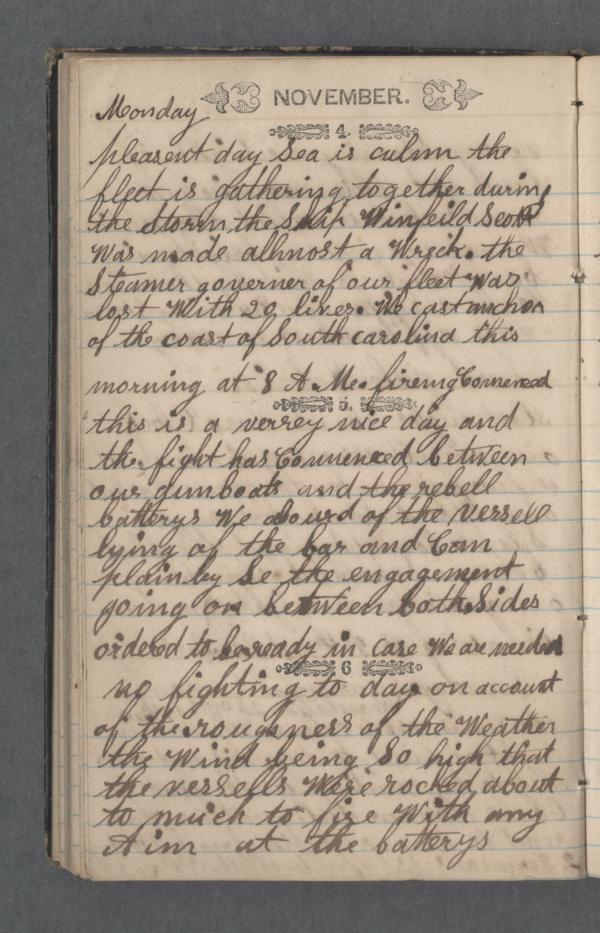 NOVEMBER.
Monday
4.
pleasent day Sea is culm the
fleet is gathering together during
the Storm the Ship Winfeild Scott
Was made allmost a Wreck. the
Steamer governer of our fleet Was
lost With 20 lives. We cast anchor
of the coast of South carolina this
morning at 8 A.M. fireing Comenced
5.
this is a verrey nice day and
the fight has Comenced between
our gunboats and the rebell
batterys We aboard of the Vessell
lying of the bar and Can
plainley Se the engagement
going on between both Sides
ordered to be ready in case We are needed
6
no fighting to day on account
of the roughness of the Weather
the Wind being So high that
the vessells Were rocked about
to much to fire With any
Aim at the batterys